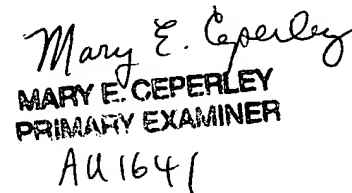 Mary E. Ceperley
MARY E. CEPERLEY
PRIMARY EXAMINER
AU 1641